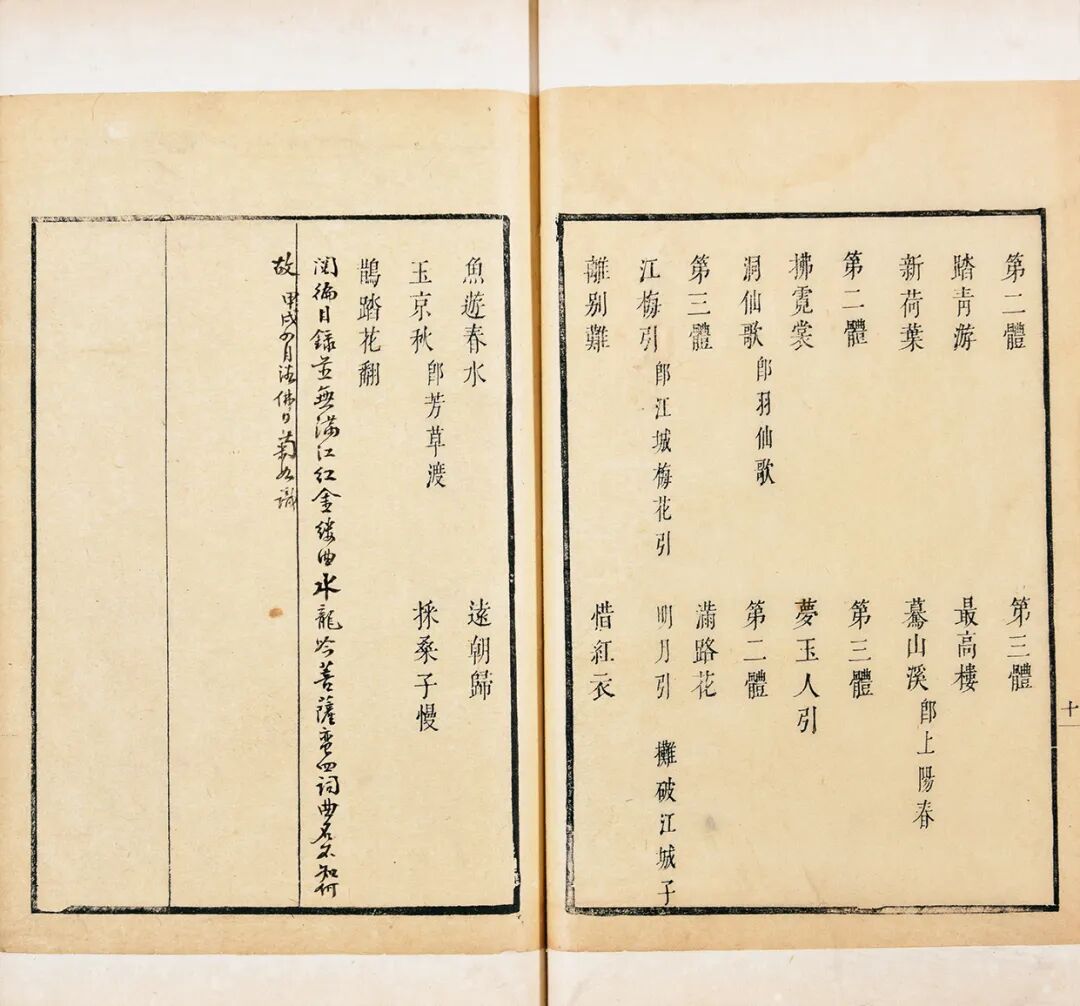 第二體 第三體
踏青游 最高樓
新荷葉 驀山溪 卽上陽春
第二體 第三體
拂霓裳 夢玉人引
洞仙歌 卽羽仙歌 第二體
第三體 滿路花
江梅引 卽江城梅花引 明月引 攤破江城子
離别難 惜紅衣
十一
魚遊春水 遠朝歸
玉京秋 卽芳草渡 採桑子慢
鵲踏花翻
閱徧目錄並無滿江紅金縷曲水龍吟菩薩蠻四詞曲名不知何
故 甲戌 月浴佛日菊 識